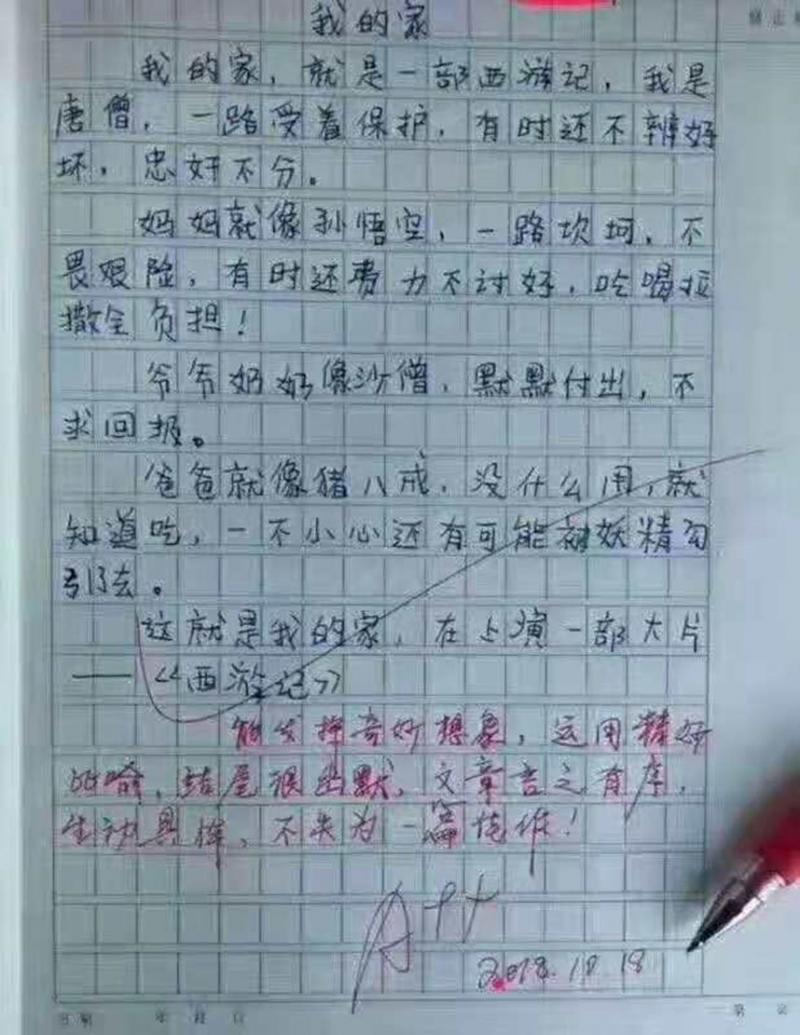 我的家
我的家，就是一部西游记，我是
唐僧，一路受着保护，有时还不辨好
坏，忠奸不分。
妈妈就像孙悟空，一路坎坷，不
畏艰险，有时还费力不讨好，吃喝拉
撒全负担！
爷爷奶奶像沙僧，默默付出，不
求回报。
爸爸就像猪八戒，没什么用，就
知道吃，一不小心还有可能被妖精勾
引去。
这就是我的家，在上演一部大片
——《西游记》
能发挥奇妙想象，运用精妙
比喻，结尾很幽默，文章言之有序，
生动具体，不失为一篇佳作！
A++
2018.10.18